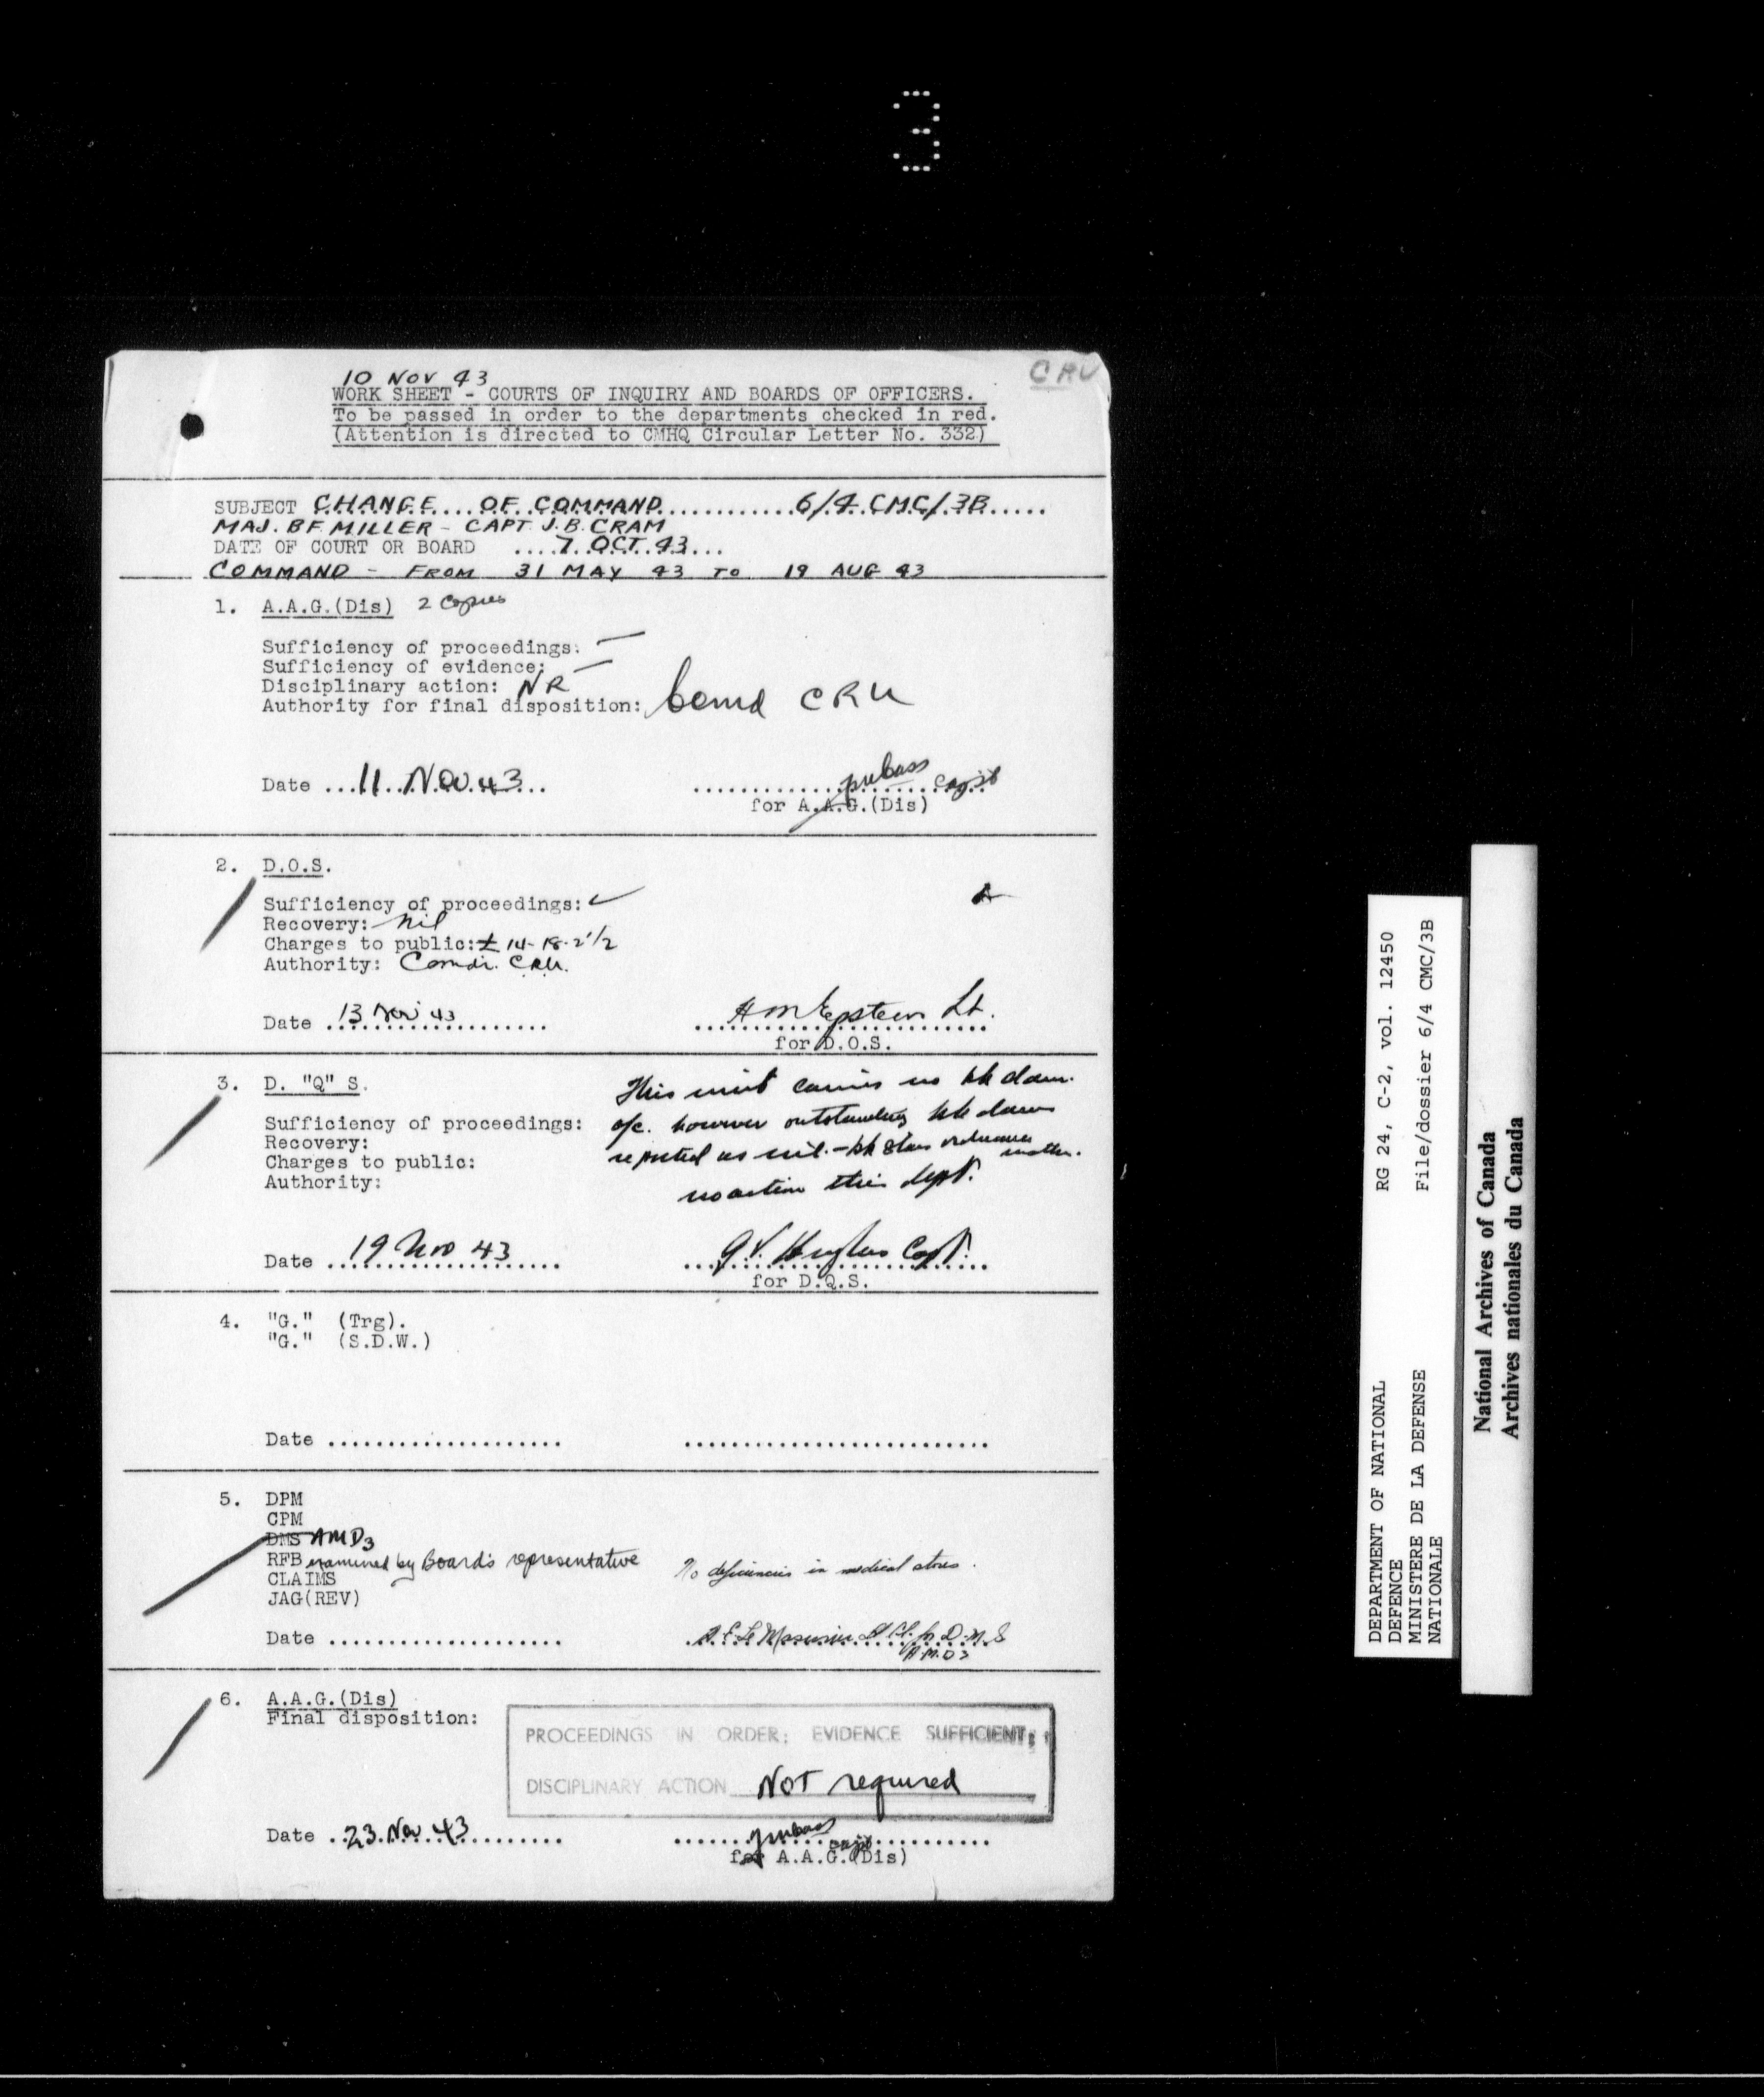 3
10 NOV 43
CRU
WORK SHEET - COURTS OF INQUIRY AND BOARDS OF OFFICERS.
To be passed in order to the departments checked in red.
(Attention is directed to CMHQ Circular Letter No. 332)
SUBJECT CHANGE....OF COMMAND............6/4 CMC/3B.....
MAJ. BF MILLER - CAPT J.B. CRAM
DATE OF COURT OR BOARD ....7 OCT 43...
COMMAND - FROM 31 MAY 43 TO 19 AUG 43
1. A.A.G.(Dis) 2 Copies
Sufficiency of proceedings: —
Sufficiency of evidence: —
Disciplinary action: NR
Authority for final disposition: Comd CRU
Date ...11 Nov 43... .......... Capt
for A.A.G.(Dis)
2. D.O.S.
Sufficiency of proceedings: ✓
Recovery: Nil
Charges to public: £ 14-18-2 1/2
Authority: Comdr. CRU.
Date 13 Nov 43 HM Epstein Lt.
for D.O.S.
3. D. "Q" S. This unit carries no bk dam.
Sufficiency of proceedings: a/c. however outstanding bk dams
Recovery: reported as nil. - bk stores ordnance matter.
Charges to public:
Authority: no action this dept.
Date 19 Nov 43 G.V. Hughes Capt.
for D.Q.S.
4. "G." (Trg).
"G." (S.D.W.)
Date .................... ..........................
5. DPM
CPM
DMS AMD3
RFB examined by Board's representative No deficiencies in medical stores.
CLAIMS
JAG(REV)
Date .................... Le Masurier for D.M.S
A.M.D3
6. A.A.G.(Dis)
Final disposition:
PROCEEDINGS IN ORDER; EVIDENCE SUFFICIENT;
DISCIPLINARY ACTION NOT required
Date ..23 Nov 43.......... .......... Capt
for A.A.G.(Dis)
RG 24, C-2, vol. 12450
File/dossier 6/4 CMC/3B
DEPARTMENT OF NATIONAL
DEFENCE
MINISTERE DE LA DEFENSE
NATIONALE
National Archives of Canada
Archives nationales du Canada